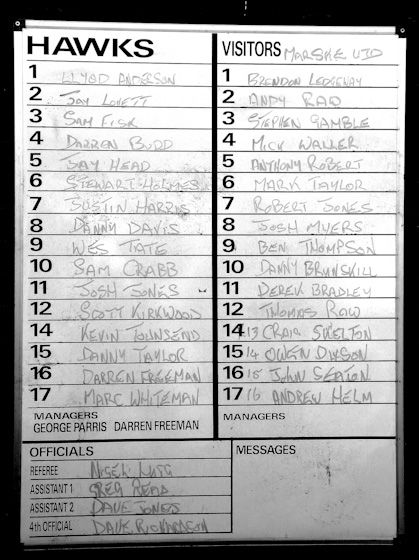 HAWKS
1 LLYOD ANDERSON
2 JAY LOVETT
3 SAM FISK
4 DARREN BUDD
5 JAY HEAD
6 STEWART HOLMES
7 JUSTIN HARRIS
8 DANNY DAVIS
9 WES TATE
10 SAM CRABB
11 JOSH JONES
12 SCOTT KIRKWOOD
14 KEVIN TOWNSEND
15 DANNY TAYLOR
16 DARREN FREEMAN
17 MARC WHITEMAN
MANAGERS
GEORGE PARRIS DARREN FREEMAN
VISITORS MARSKE UTD
1 BRENDON
2 ANDY RAO
3 STEPHEN GAMBLE
4 MICK WALLER
5 ANTHONY ROBERT
6 MARK TAYLOR
7 ROBERT JONES
8 JOSH MYERS
9 BEN THOMPSON
10 DANNY BRUNSKILL
11 DEREK BRADLEY
12 THOMAS
14 13 CRAIG SKELTON
15 14 OWEN DIXSON
16 15 JOHN SEATON
17 16 ANDREW HELM
MANAGERS
OFFICIALS
REFEREE NIGEL
ASSISTANT 1 GREG READ
ASSISTANT 2 DAVE JONES
4th OFFICIAL DAVE RICHARDSON
MESSAGES